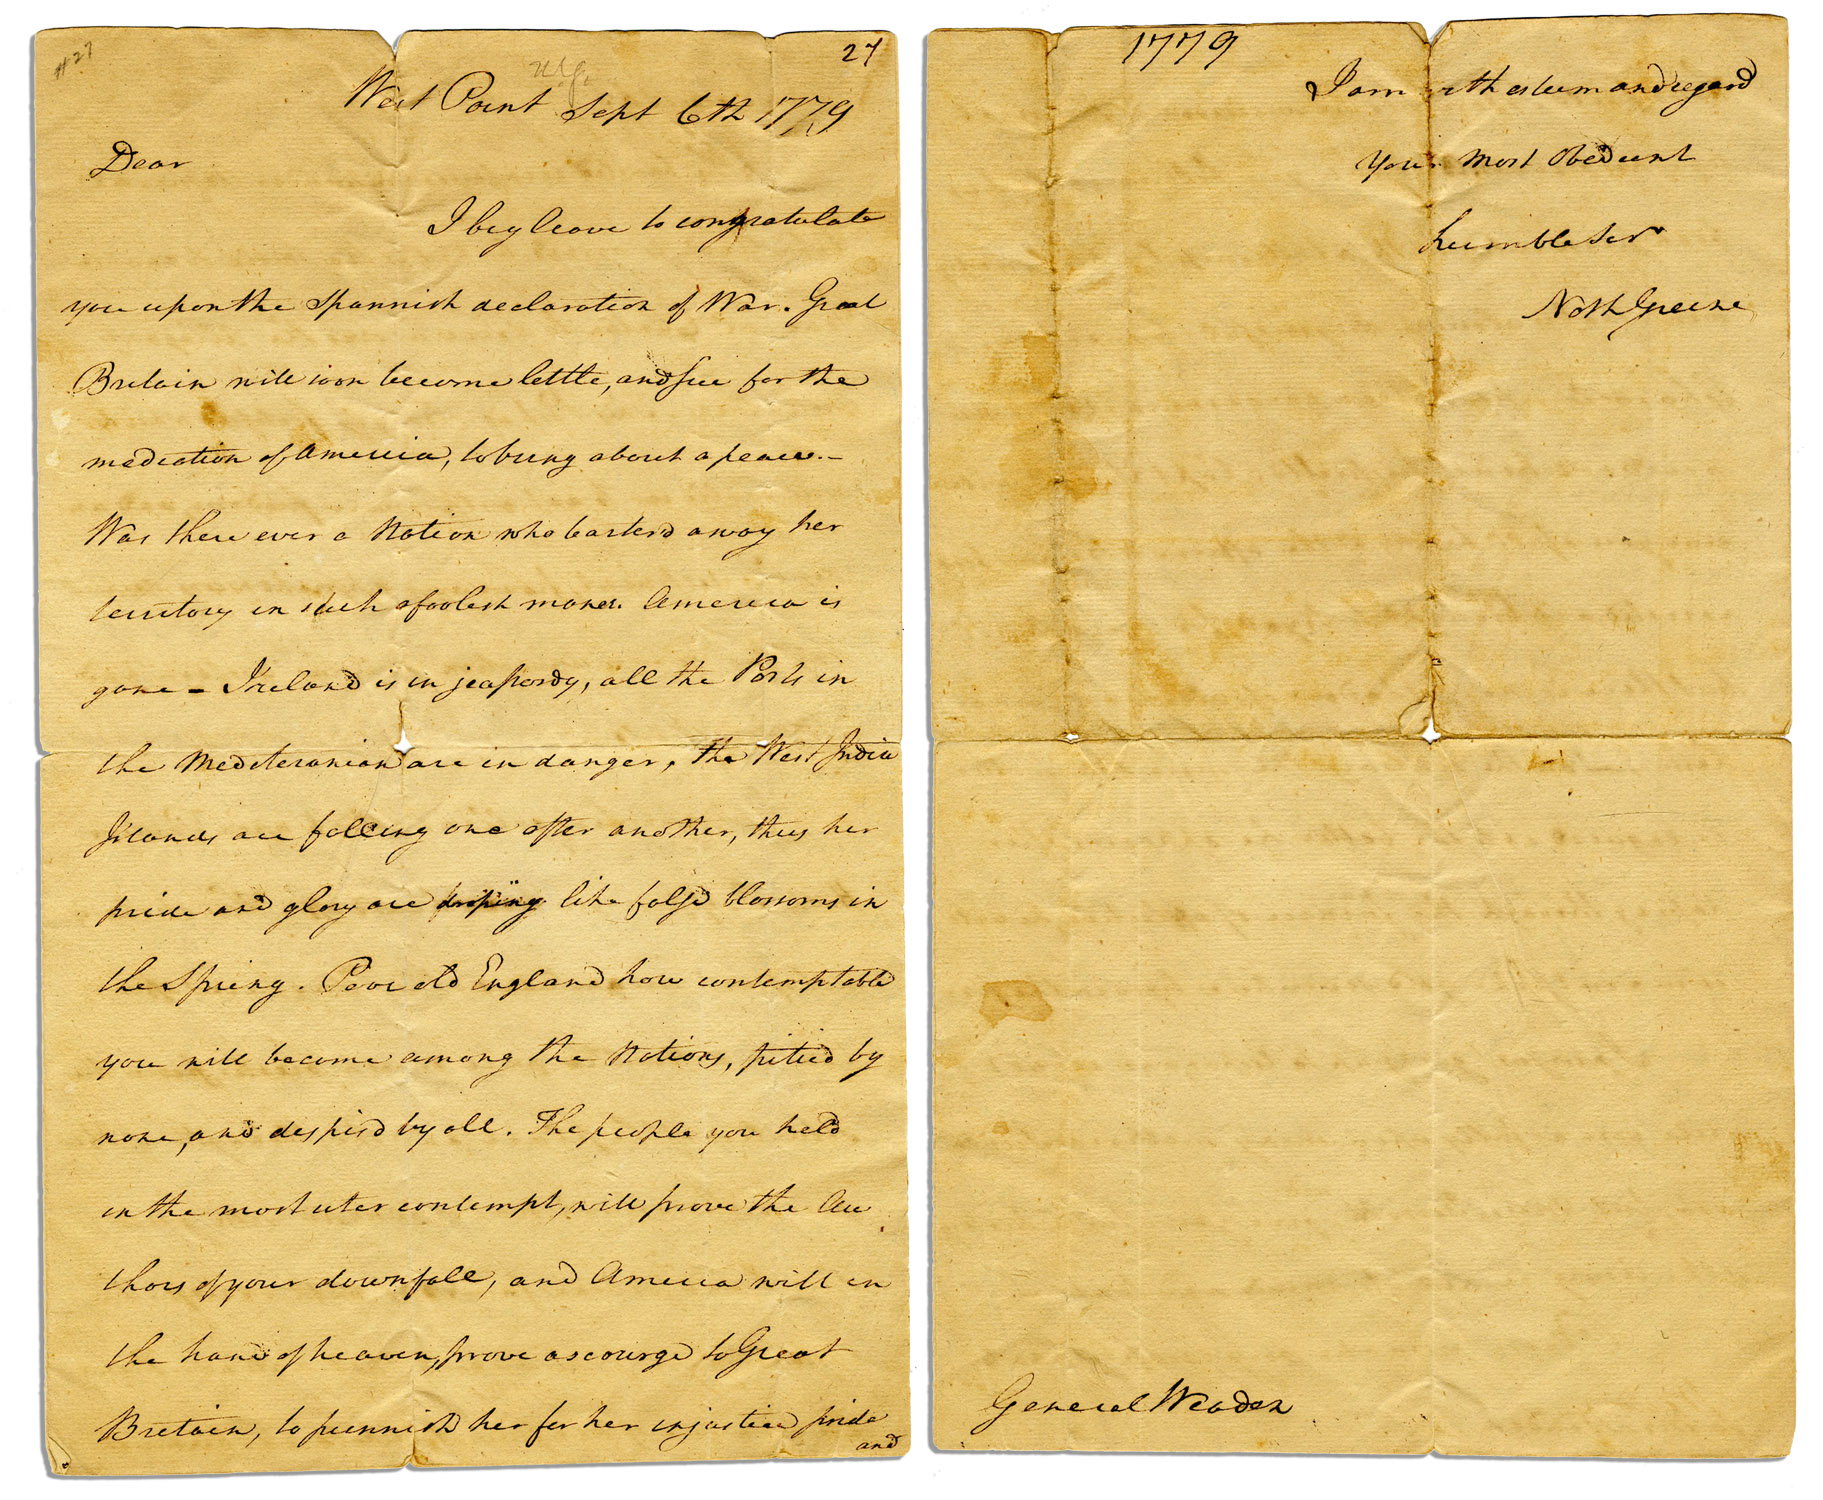 # 27
27
West Point Sept 6th 1779
Dear
I beg leave to congratulate
you upon the Spannish declaration of War. Great
Britain will soon become little, and sue for the
mediation of America, to bring about a peace.-
Was there ever a Nation who barterd away her
territory in such a foolish maner. America is
gone - Ireland is in jeapordy, all the Ports in
the Mediteranian are in danger, the West India
Islands are falling one after another, thus her
pride and glory are droping like falsd blossoms in
the Spring. Poor old England how contemptable
you will become among the Nations, pitied by
none, and despisd by all. The people you held
in the most uter contempt, will prove the Au
thors of your downfall, and America will in
the hand of heaven, prove a scourge to Great
Britain, to punnish her for her injustice pride
and
1779
I am with esteem and regard
Your most Obedient
humble Servt
Nath Greene
General Weadon